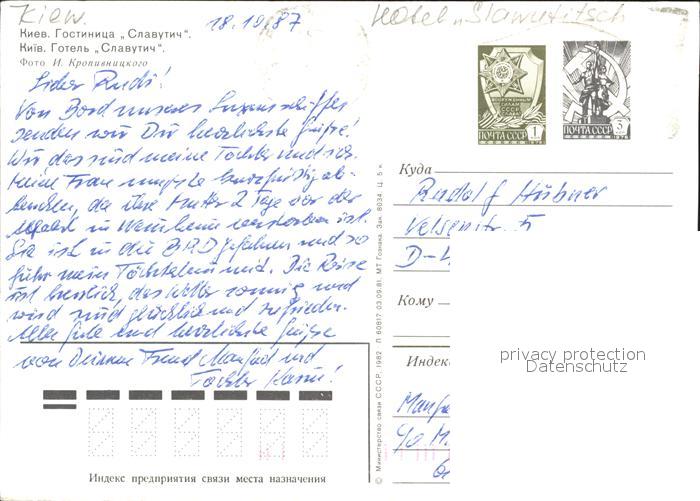 Kiew.
18.10.87
Hotel "Slawutitsch
Киев. Гостиница „Славутич“.
Київ. Готель „Славутич“.
Фото И. Кропивницкого
Lieber Rudi!
Von Bord unseres Luxusschiffes
senden wir Dir herzlichste Grüße!
Wir das sind meine Tochter und ich.
Meine Frau mußte kurzfristig ab-
brechen, da ihre Mutter 2 Tage vor der
Abfahrt in Weinheim verstorben ist.
Sie ist in die BRD gefahren und so
fuhr mein Töchterlein mit. Die Reise
ist herrlich, das Wetter sonnig und
wir sind glücklich und zufrieden.
Alles Gute und herzlichste Grüße
von Deinem Freund Manfred und
Tochter Karin!
ВООРУЖЕННЫЕ
СИЛЫ
СССР
ПОЧТА СССР 1
1976
ПОЧТА СССР 3
1976
Куда
Rudolf Hübner
Velsenstr. 5
D-4
Кому
Индекс
privacy protection
Datenschutz
Manf
40 M
© Министерство связи СССР. 1982 Л 60817 03.09.81. МТ Гознака. Зак. 8034. Ц. 5 к.
Индекс предприятия связи места назначения